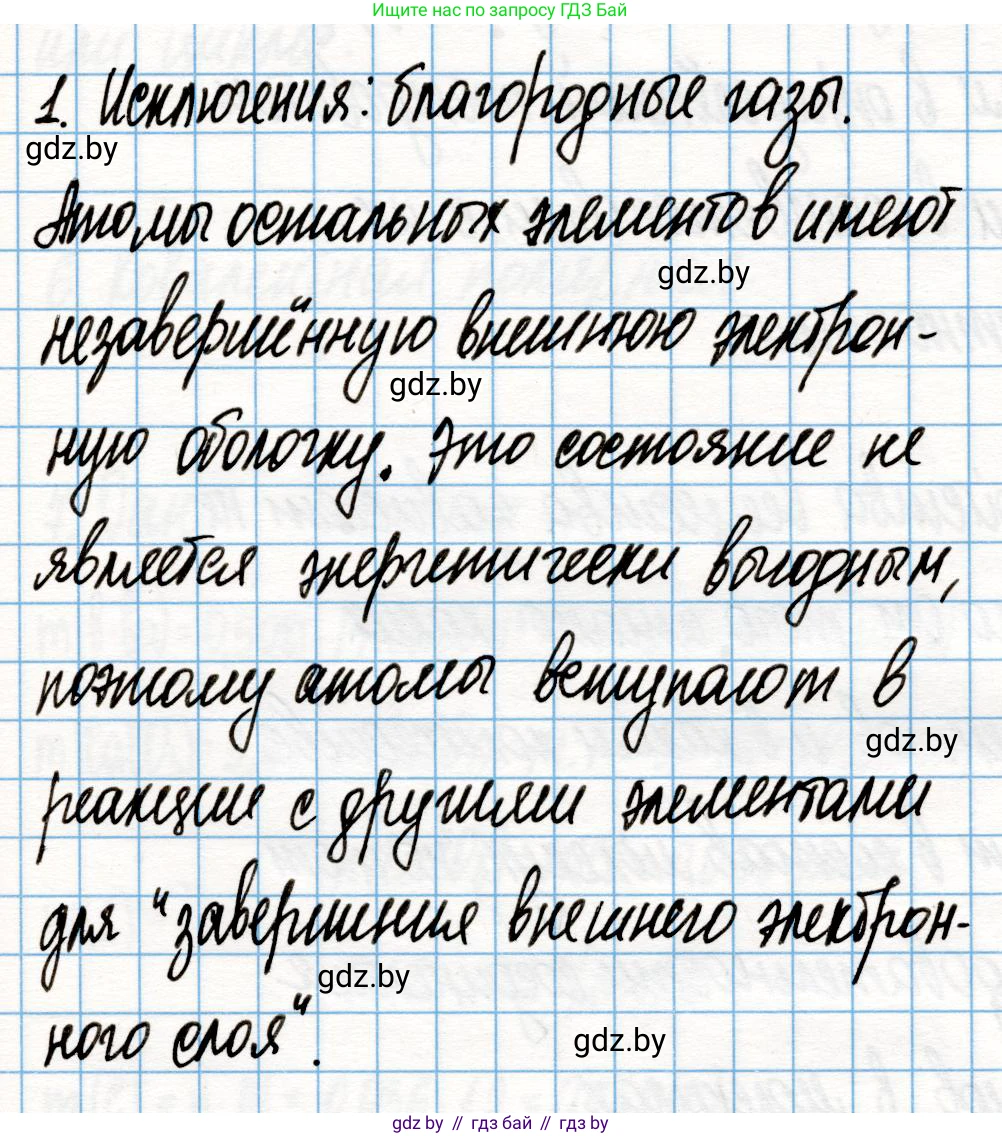 Ищите нас по запросу ГДЗ Бай
1. Исключения: благородные газы.
gdz.by
Атомы остальных элементов имеют
gdz.by
незавершённую внешнюю электрон-
gdz.by
ную оболочку. Это состояние не
является энергетически выгодным,
поэтому атомы вступают в
gdz.by
реакции с другими элементами
для "завершения внешнего электрон-
gdz.by
ного слоя".
gdz.by
gdz.by // гдз бай // gdz.by